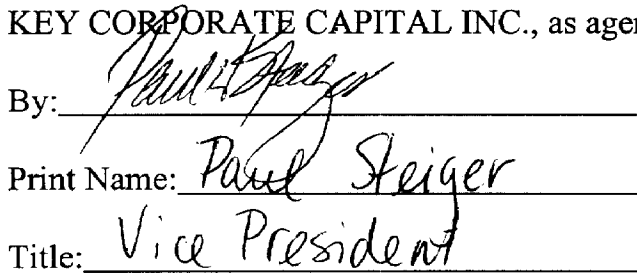 KEY CORPORATE CAPITAL INC., as age
By:
Print Name: Paul Steiger
Title: Vice President